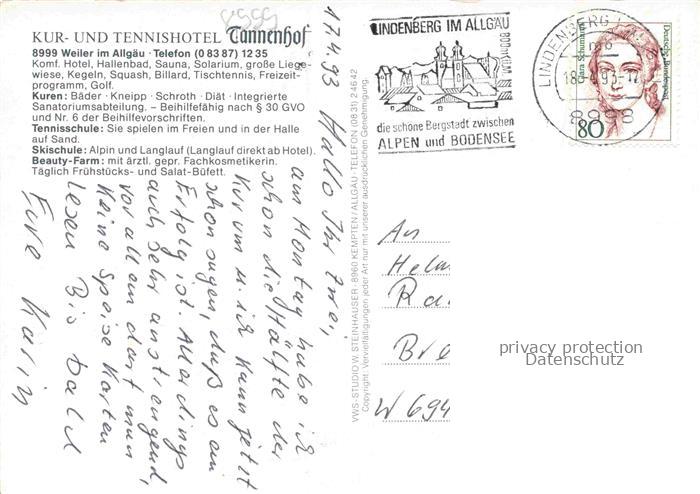 KUR- UND TENNISHOTEL Tannenhof
8999 Weiler im Allgäu · Telefon (0 83 87) 12 35
Komf. Hotel, Hallenbad, Sauna, Solarium, große Liege-
wiese, Kegeln, Squash, Billard, Tischtennis, Freizeit-
programm, Golf.
Kuren: Bäder · Kneipp · Schroth · Diät · Integrierte
Sanatoriumsabteilung. – Beihilfefähig nach § 30 GVO
und Nr. 6 der Beihilfevorschriften.
Tennisschule: Sie spielen im Freien und in der Halle
auf Sand.
Skischule: Alpin und Langlauf (Langlauf direkt ab Hotel).
Beauty-Farm: mit ärztl. gepr. Fachkosmetikerin.
Täglich Frühstücks- und Salat-Büfett.
17.4.93 Hallo Ihr zwei,
am Montag habe ich
schon die Hälfte der
Kur um u. ich kann jetzt
schon sagen, daß es ein
Erfolg ist. Allerdings
auch sehr anstrengend,
vor allem darf man
keine Speise Karten
lesen Bis bald
Eure Karin
VWS-STUDIO W. STEINHAUSER · 8960 KEMPTEN/ALLGÄU · TELEFON (0831) 2 46 42
Copyright: Vervielfältigungen jeder Art nur mit unserer ausdrücklichen Genehmigung.
LINDENBERG IM ALLGÄU
die schöne Bergstadt zwischen
ALPEN und BODENSEE
LINDENBERG I
8998
Clara Schumann
Deutsche Bundespost
80
An
Helm
Ra
Bre
W 694
privacy protection
Datenschutz